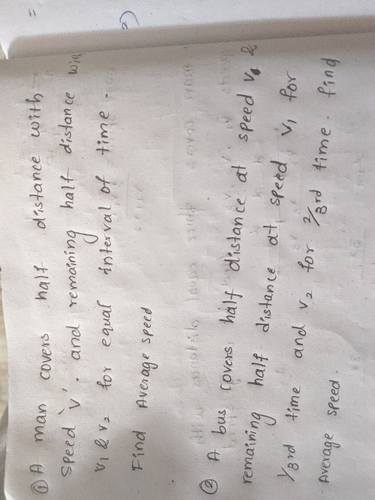 ① A man covers half distance with
speed 'v'. and remaining half distance with
v1 & v2 for equal interval of time.
Find Average speed
② A bus covers half distance at speed v0 &
remaining half distance at speed v1 for
1/3rd time and v2 for 2/3rd time. find
Average speed.